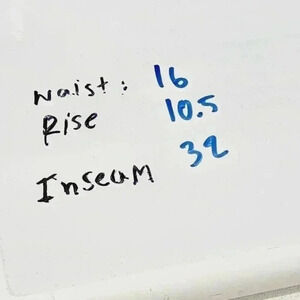 Waist: 16
Rise 10.5
Inseam 32